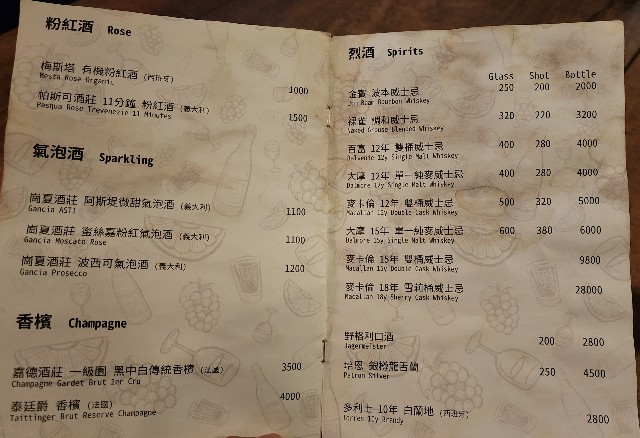 粉紅酒 Rose
梅斯塔 有機粉紅酒 (西班牙) 1000
Mesta Rose Organic
帕斯可酒莊 11分鐘 粉紅酒 (義大利) 1500
Pasqua Rose Trevenezie 11 Minutes
氣泡酒 Sparkling
崗夏酒莊 阿斯堤微甜氣泡酒 (義大利) 1100
Gancia ASTI
崗夏酒莊 蜜絲嘉粉紅氣泡酒 (義大利) 1100
Gancia Moscato Rose
崗夏酒莊 波西可氣泡酒 (義大利) 1200
Gancia Prosecco
香檳 Champagne
嘉德酒莊 一級園 黑中白傳統香檳 (法國) 3500
Champagne Gardet Brut 1er Cru
泰廷爵 香檳 (法國) 4000
Taittinger Brut Reserve Champagne
烈酒 Spirits
Glass Shot Bottle
金賓 波本威士忌 250 200 2000
Jim Beam Bourbon Whiskey
裸雀 調和威士忌 320 220 3200
Naked Grouse Blended Whiskey
百富 12年 雙桶威士忌 400 280 4000
Balvenie 12y Single Malt Whiskey
大摩 12年 單一純麥威士忌 400 280 4000
Dalmore 12y Single Malt Whiskey
麥卡倫 12年 雙桶威士忌 500 320 5000
Macallan 12y Double Cask Whiskey
大摩 15年 單一純麥威士忌 600 380 6000
Dalmore 15y Single Malt Whiskey
麥卡倫 15年 雙桶威士忌 9800
Macallan 15y Double Cask Whiskey
麥卡倫 18年 雪莉桶威士忌 28000
Macallan 18y Sherry Cask Whiskey
野格利口酒 200 2800
Jagermeister
培恩 銀樽龍舌蘭 250 4500
Patron Silver
多利士 10年 白蘭地 (西班牙) 2800
Torres 10y Brandy